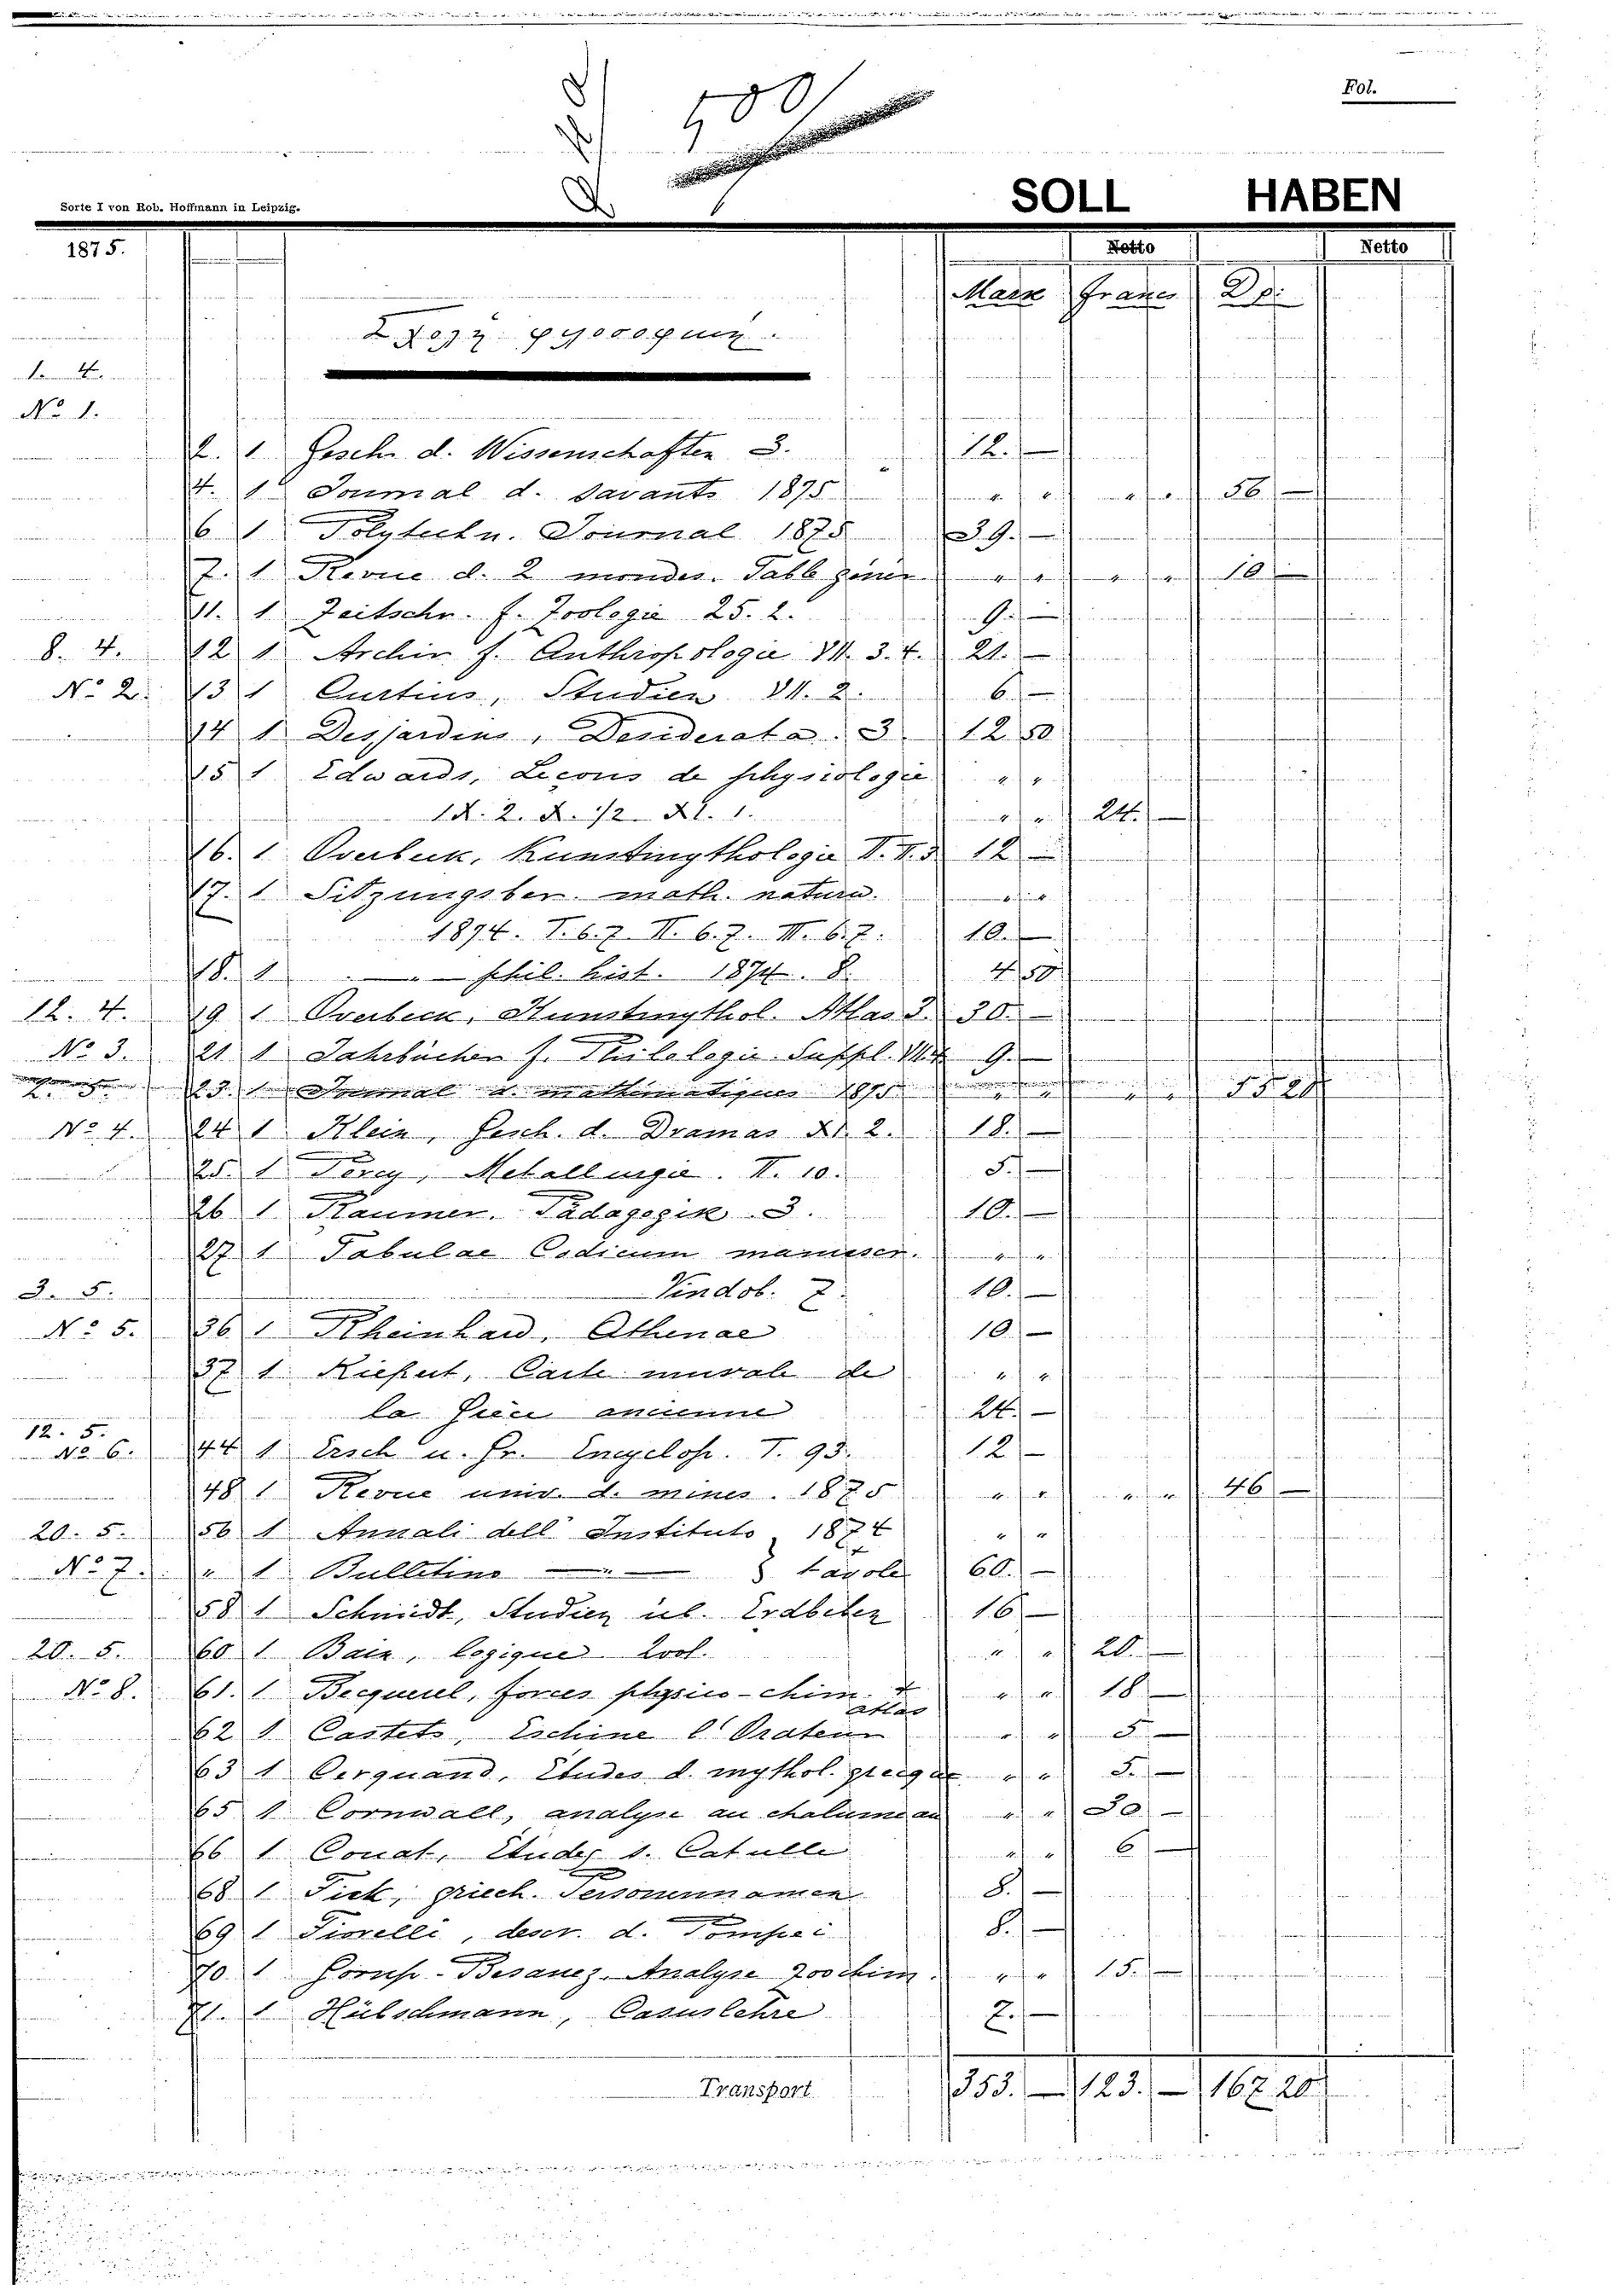 Fol.
400
Sorte I von Rob. Hoffmann in Leipzig.
SOLL HABEN
1875. Netto Netto
Mark Francs Dr.
1. 4.
No 1.
2. 1 Gesch d. Wissenschaften 3. 12. —
4. 1 Journal d. savants 1875 " " " " 56 —
6 1 Polytechn. Journal 1875 39. —
7. 1 Revue d. 2 mondes. Table génér " " " " 10 —
11. 1 Zeitschr. f. Zoologie 25. 2. 9. —
8. 4. 12 1 Archiv f. Anthropologie VII. 3. 4. 21. —
No 2. 13 1 Curtius, Studien VII. 2. 6. —
14 1 Desjardins, Desiderata. 3 12 50
15 1 Edwards, Leçons de physiologie " "
" " 24. —
16. 1 Overbeck, Kunstmythologie 12 —
17. 1 Sitzungsber. math. naturw. " "
1874. I. 6. 7. II. 6. 7. III. 6. 7. 10. —
18. 1 — " — phil. hist. 1874. 8. 4 50
12. 4. 19 1 Overbeck, Kunstmythol. Atlas 3. 30. —
No 3. 21 1 Jahrbücher f. Philologie Suppl. 9. —
23. 1 Journal d. mathématiques 1875 " " " "
No 4. 24 1 Klein, Gesch. d. Dramas XI. 2. 18. —
25. 1 Percy, Metallurgie. II. 10. 5. —
26 1 Raumer. Pädagogik 3. 10. —
27 1 Tabulae Codicum manuscr. " "
3. 5. Vindob. 7. 10. —
No 5. 36 1 Rheinhard, Athenae 10. —
37 1 Kiepert, Carte murale de " "
la Grèce ancienne 24. —
12. 5.
No 6. 44 1 Ersch u. Gr. Encyclop. I. 93. 12 —
48 1 Revue univ. d. mines. 1875 " " " " 46 —
20. 5. 56 1 Annali dell' Instituto 1874 " "
No 7. " 1 Bulletino — " — tavole 60. —
58 1 Schmidt, Studien üb. Erdbeben 16 —
20. 5. 60 1 Bain, logique 2 vol. " " 20. —
No 8. 61. 1 Becquerel, forces physico-chim. + atlas " " 18 —
62 1 Castets, Eschine l'Orateur " " 5 —
63 1 Cerquand, Études d. mythol. grecque " " 5. —
65 1 Cornwall, analyse au chalumeau " " 30. —
66 1 Couat, Études s. Catulle " " 6 —
68 1 Fick, griech. Personennamen 8. —
69 1 Fiorelli, descr. d. Pompei 8. —
70 1 Gorup-Besanez, Analyse zoochim. " " 15. —
71. 1 Hübschmann, Casuslehre 7. —
Transport 353. — 123. — 167 20